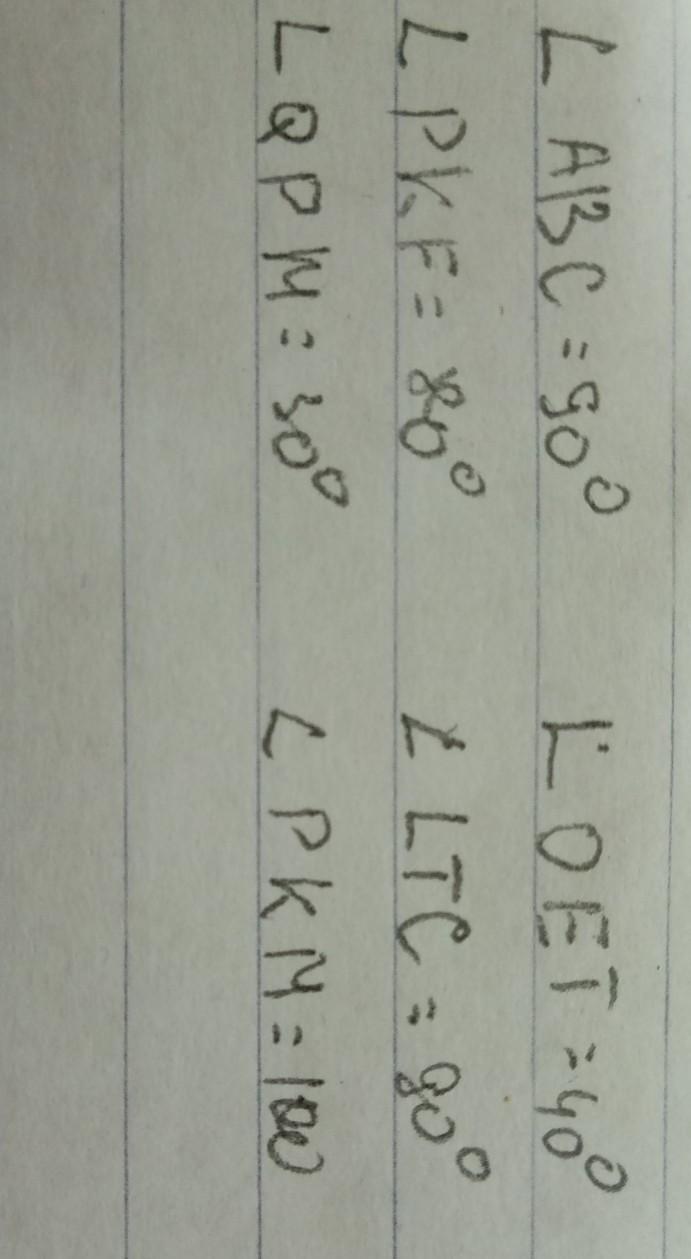 ∠ABC=90° ∠OET=40°
∠PKF=80° ∠LTC=90°
∠QPM=30° ∠PKM=100